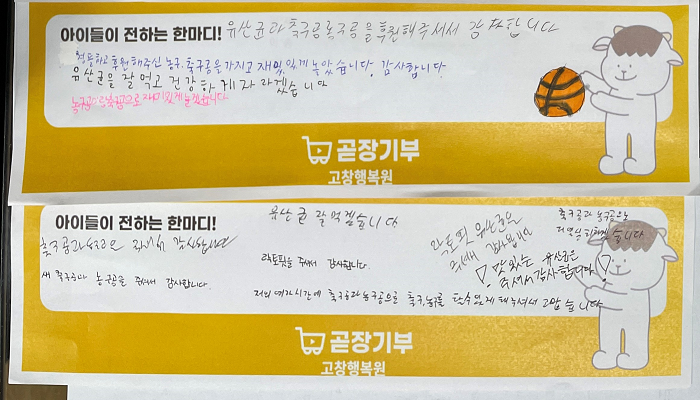 아이들이 전하는 한마디! 유산균과 축구공 농구공을 후원해주셔서 감사합니다
후원해주신 농구, 축구공을 가지고 재밌있게 놀았습니다. 감사합니다.
유산균을 잘 먹고 건강하게 자라겠습니다
농구공이랑 축구공으로 재미있게 놀겠습니다
곧장기부
고창행복원
아이들이 전하는 한마디!
유산균 잘 먹겠습니다
축구공과 농구공으로
더 연습하겠습니다
축구공과 감사합니다
락토핏 유산균을
주셔서 감사합니다
새 축구공과 농구공을 주셔서 감사합니다.
락토핏을 주셔서 감사합니다.
맛있는 유산균을
주셔서 감사합니다
저희 여가시간에 축구공과 농구공으로 축구, 농구를 할수있게 해주셔서 고맙습니다
곧장기부
고창행복원